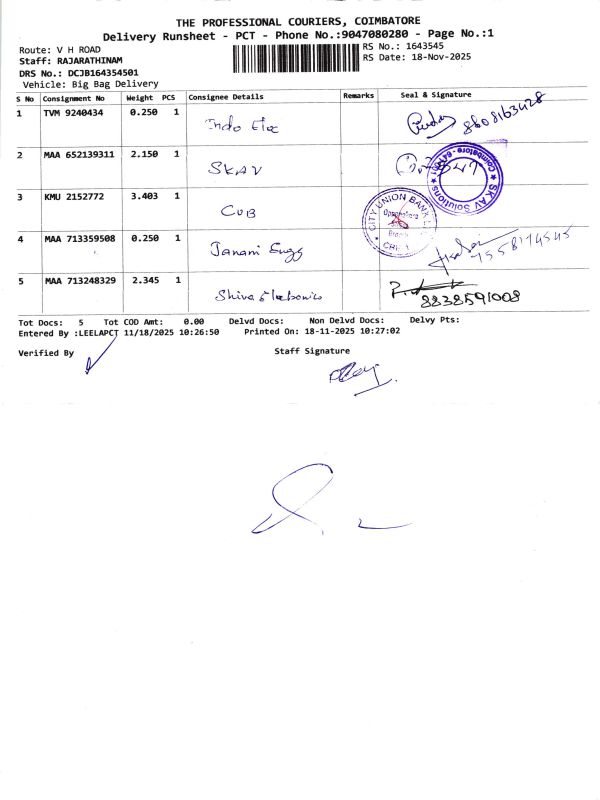 THE PROFESSIONAL COURIERS, COIMBATORE
Delivery Runsheet - PCT - Phone No.:9047080280 - Page No.:1
Route: V H ROAD
RS No.: 1643545
Staff: RAJARATHINAM
RS Date: 18-Nov-2025
DRS No.: DCJB164354501
Vehicle: Big Bag Delivery
S No Consignment No Weight PCS Consignee Details Remarks Seal & Signature
1 TVM 9240434 0.250 1 Indo Elec 8608163428
2 MAA 652139311 2.150 1 SKAV
SKAV Solutions Coimbatore
3 KMU 2152772 3.403 1 CUB
CITY UNION BANK
4 MAA 713359508 0.250 1 Janani Enggs
5 MAA 713248329 2.345 1 Shiva Electronics 8838591008
Tot Docs: 5 Tot COD Amt: 0.00 Delvd Docs: Non Delvd Docs: Delvy Pts:
Entered By :LEELAPCT 11/18/2025 10:26:50 Printed On: 18-11-2025 10:27:02
Verified By Staff Signature